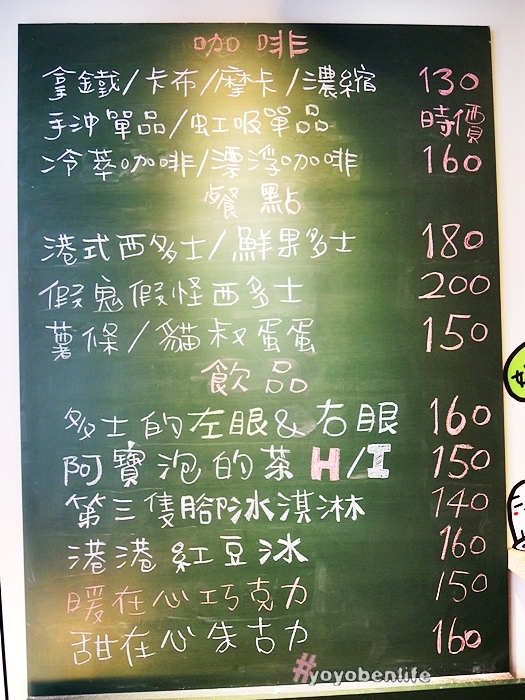 咖啡
拿鐵/卡布/摩卡/濃縮 130
手沖單品/虹吸單品 時價
冷萃咖啡/漂浮咖啡 160
餐點
港式西多士/鮮果多士 180
假鬼假怪西多士 200
薯條/貓叔蛋蛋 150
飲品
多士的左眼&右眼 160
阿寶泡的茶H/I 150
第三隻腳冰淇淋 140
港港紅豆冰 160
暖在心巧克力 150
甜在心朱古力 160
#yoyobenlife